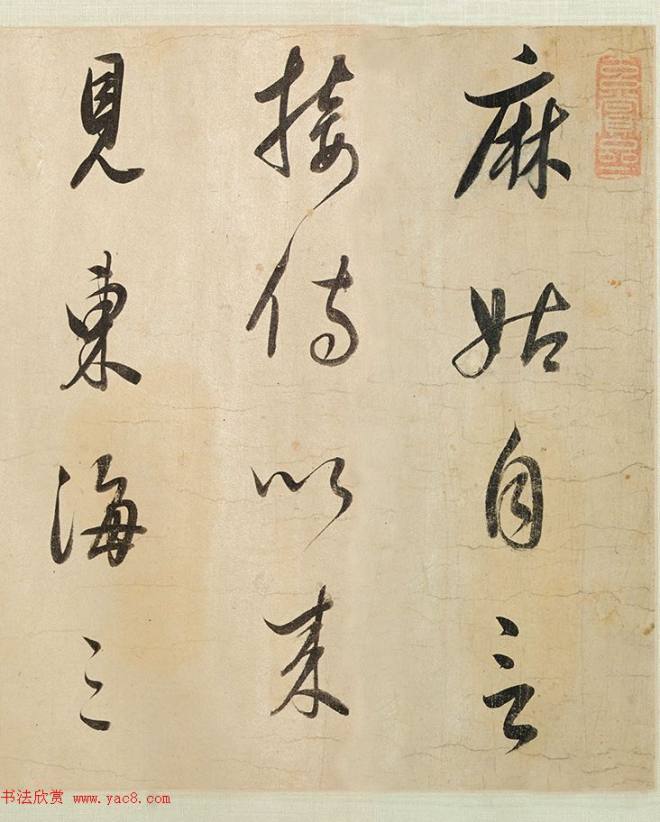 麻姑自言
接侍以来
見東海三
书法欣赏 www.yac8.com